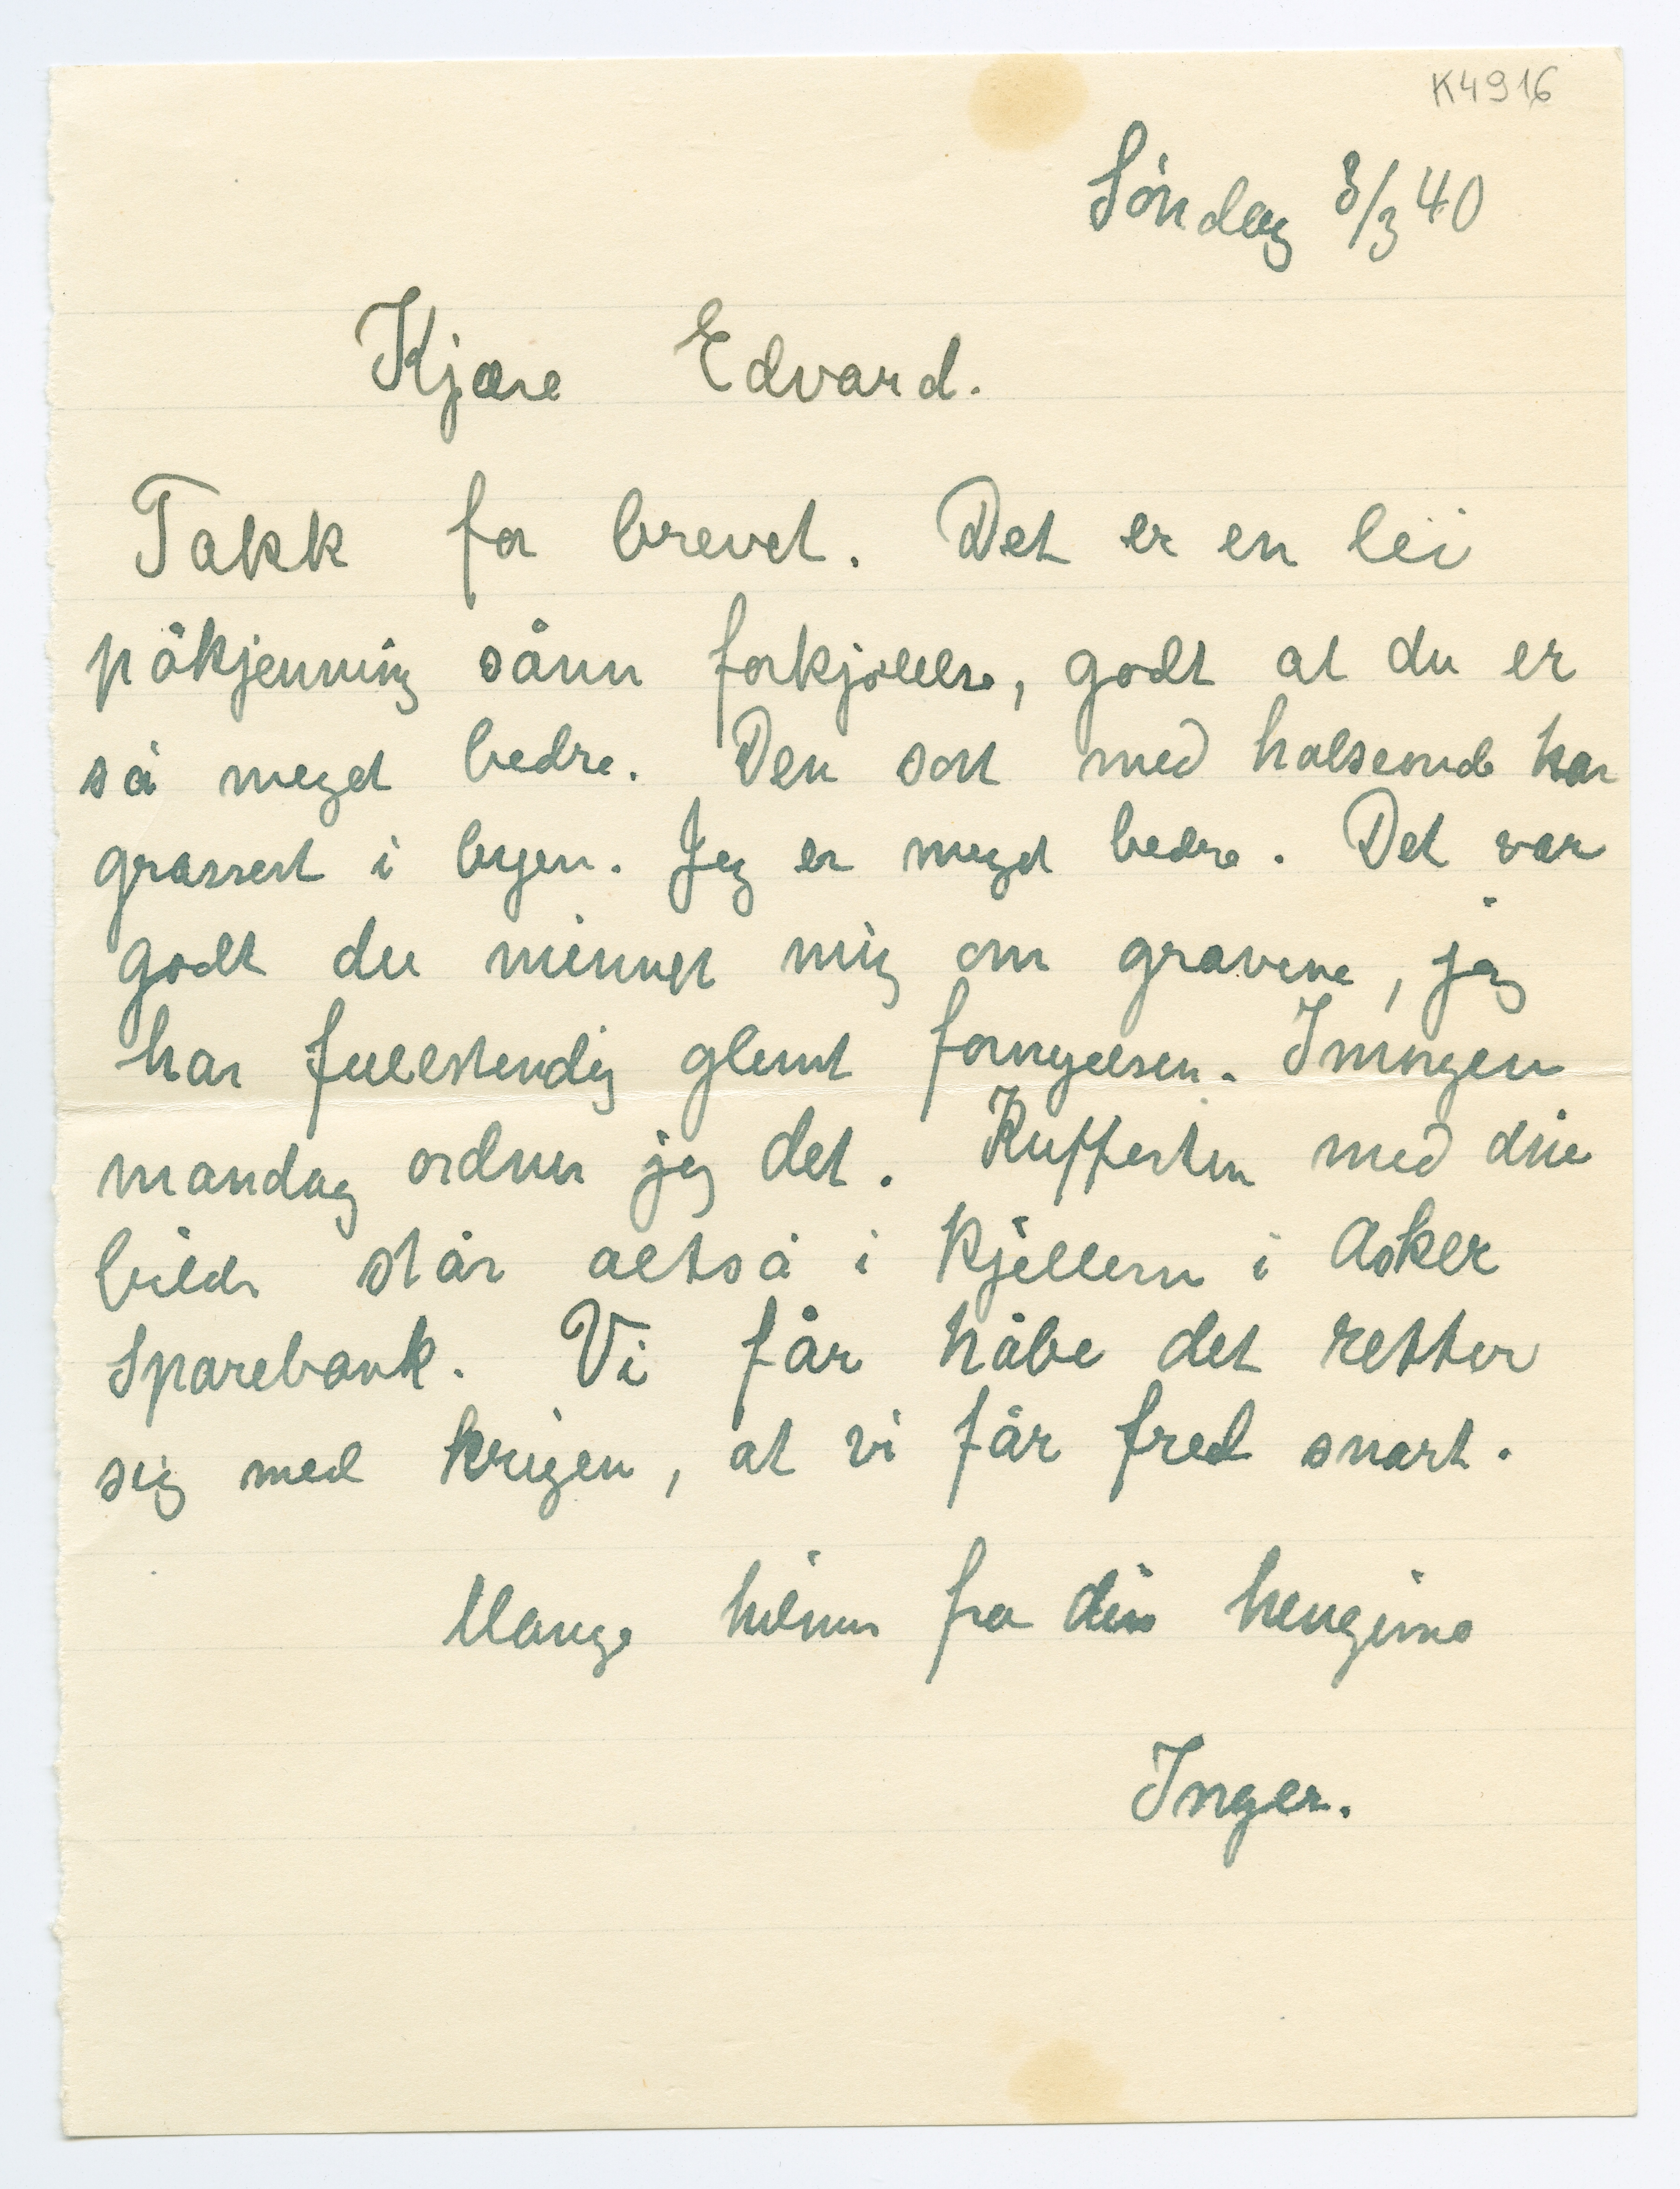 K4916
Søndag 3/3 40
Kjære Edvard.
Takk for brevet. Det er en lei
påkjenning sånn forkjølelse, godt at du er
så meget bedre. Den sort med halsonde har
grassert i byen. Jeg er meget bedre. Det var
godt du minnet mig om gravene, jeg
har fullstendig glemt fornyelsen. Imorgen
mandag ordner jeg det. Kufferten med dine
bilder står altså i kjelleren i Asker
Sparebank. Vi får håbe det retter
sig med krigen, at vi får fred snart.
Mange hilsner fra din hengivne
Inger.